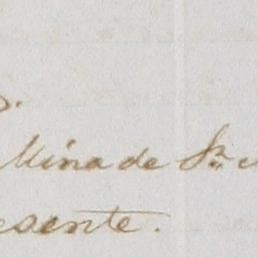 Mina de Sn
esente.